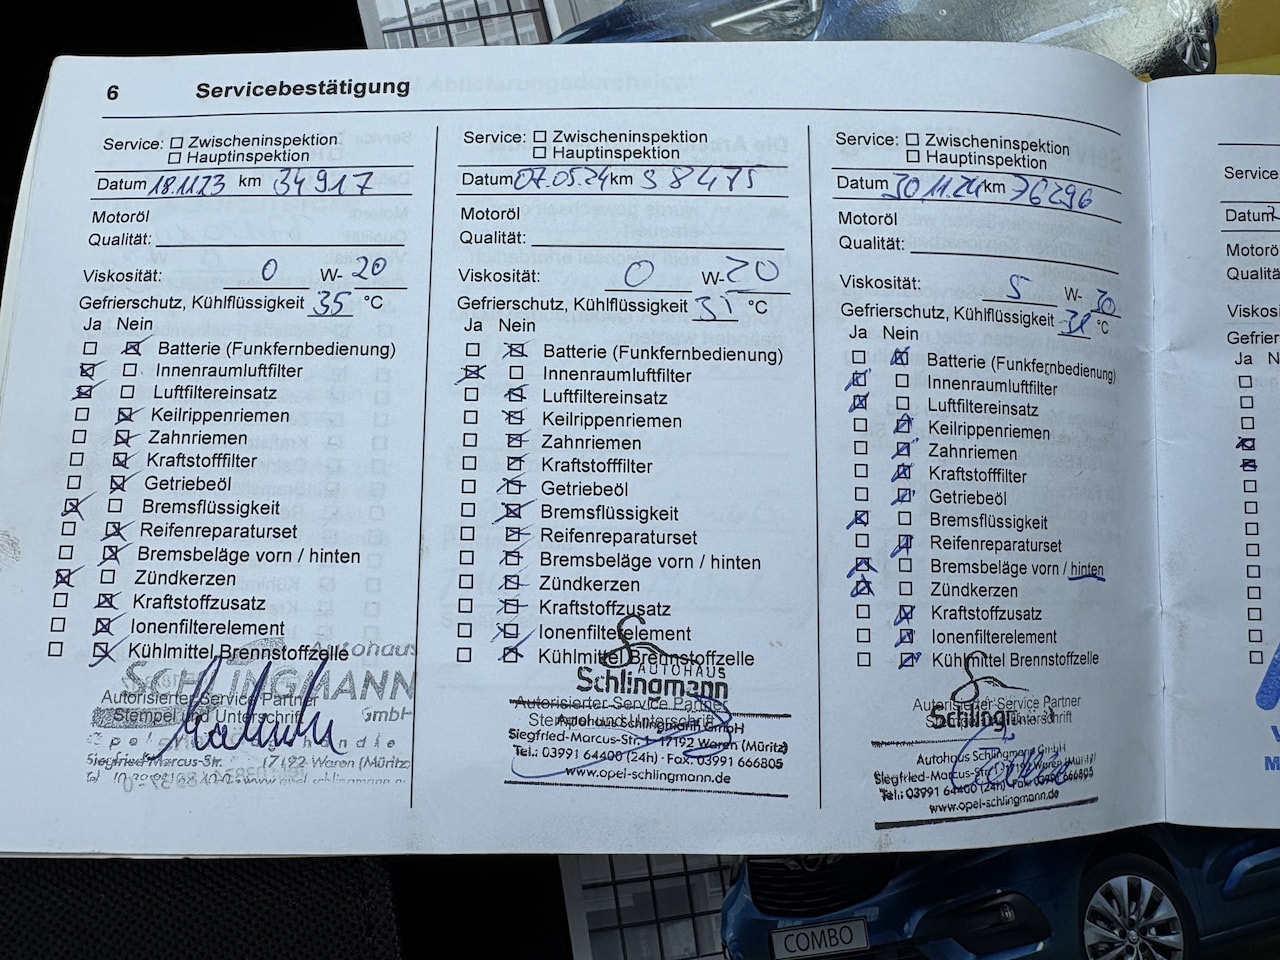 6 Servicebestätigung
Service: Zwischeninspektion
Hauptinspektion
Datum 18.11.23 km 34917
Motoröl
Qualität:
Viskosität: 0 W- 20
Gefrierschutz, Kühlflüssigkeit 35 °C
Ja Nein
Batterie (Funkfernbedienung)
Innenraumluftfilter
Luftfiltereinsatz
Keilrippenriemen
Zahnriemen
Kraftstofffilter
Getriebeöl
Bremsflüssigkeit
Reifenreparaturset
Bremsbeläge vorn / hinten
Zündkerzen
Kraftstoffzusatz
Ionenfilterelement
Kühlmittel Brennstoffzelle
Autohaus
SCHLINGMANN
GmbH
Autorisierter Service Partner
Stempel und Unterschrift
Siegfried-Marcus-Str. 17192 Waren (Müritz)
Service: Zwischeninspektion
Hauptinspektion
Datum 07.05.24 km 58475
Motoröl
Qualität:
Viskosität: 0 W- 20
Gefrierschutz, Kühlflüssigkeit 35 °C
Ja Nein
Batterie (Funkfernbedienung)
Innenraumluftfilter
Luftfiltereinsatz
Keilrippenriemen
Zahnriemen
Kraftstofffilter
Getriebeöl
Bremsflüssigkeit
Reifenreparaturset
Bremsbeläge vorn / hinten
Zündkerzen
Kraftstoffzusatz
Ionenfilterelement
Kühlmittel Brennstoffzelle
AUTOHAUS
Schlingmann
Autorisierter Service Partner
Stempel und Unterschrift
Autohaus Schlingmann GmbH
Siegfried-Marcus-Str. 1 · 17192 Waren (Müritz)
Tel.: 03991 64400 (24h) · Fax: 03991 666805
www.opel-schlingmann.de
Service: Zwischeninspektion
Hauptinspektion
Datum 20.11.24 km 76296
Motoröl
Qualität:
Viskosität: 5 W- 30
Gefrierschutz, Kühlflüssigkeit °C
Ja Nein
Batterie (Funkfernbedienung)
Innenraumluftfilter
Luftfiltereinsatz
Keilrippenriemen
Zahnriemen
Kraftstofffilter
Getriebeöl
Bremsflüssigkeit
Reifenreparaturset
Bremsbeläge vorn / hinten
Zündkerzen
Kraftstoffzusatz
Ionenfilterelement
Kühlmittel Brennstoffzelle
Autorisierter Service Partner
Autohaus Schlingmann GmbH
Siegfried-Marcus-Str. 1 17192 Waren (Müritz)
Tel.: 03991 64400 (24h) · Fax: 03991 666805
www.opel-schlingmann.de
Service
Datum
Motorö
Qualitä
Viskos
Gefrier
Ja N
COMBO